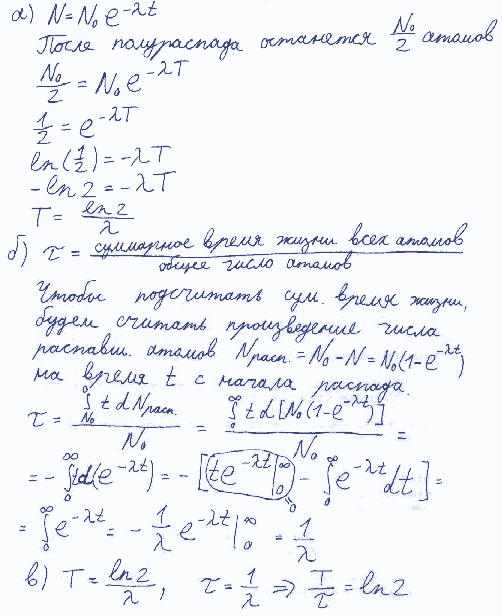 а) N = N₀ e^{-λt}
После полураспада останется N₀/2 атомов
N₀/2 = N₀ e^{-λT}
1/2 = e^{-λT}
ln(1/2) = -λT
-ln 2 = -λT
T = ln 2/λ
б) τ = суммарное время жизни всех атомов/общее число атомов
Чтобы подсчитать сум. время жизни,
будем считать произведение числа
распавш. атомов N_{расп.} = N₀ - N = N₀(1-e^{-λt})
на время t с начала распада.
τ = ∫_{N₀}^{0} t dN_{расп.}/N₀ = ∫_{0}^{∞} t d[N₀(1-e^{-λt})]/N₀ =
= -∫_{0}^{∞} t d(e^{-λt}) = -[te^{-λt}|_{0}^{∞} - ∫_{0}^{∞} e^{-λt} dt] =
=0
= ∫_{0}^{∞} e^{-λt} = -1/λ e^{-λt}|_{0}^{∞} = 1/λ
в) T = ln 2/λ, τ = 1/λ ⇒ T/τ = ln 2